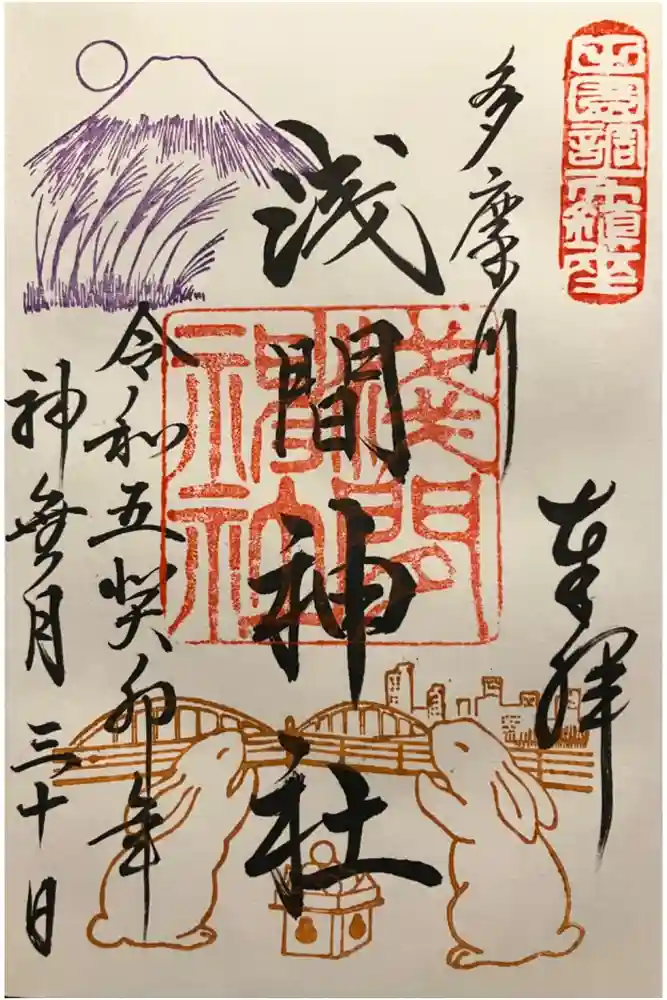 田園調布鎮座
奉拝
多摩川
浅間神社
淺間神社
令和五癸卯年
神無月三十日